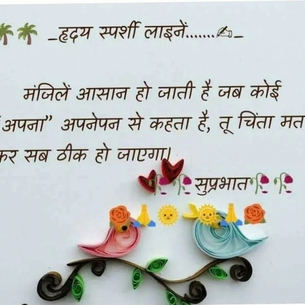 _हृदय स्पर्शी लाइनें.......✍_
मंजिलें आसान हो जाती है जब कोई
“अपना” अपनेपन से कहता है, तू चिंता मत
कर सब ठीक हो जाएगा।
सुप्रभात